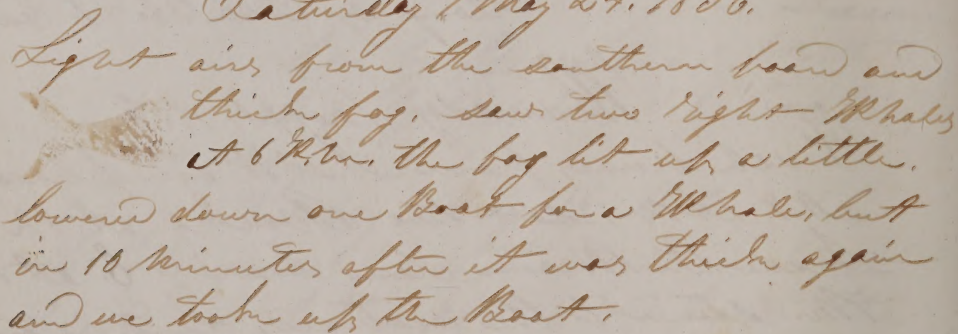 Saturday May 24. 1856.
Light airs from the southern board and
thick fog. saw two right Whales
at 6 P.M. the fog lit up a little.
lowered down one Boat for a Whale, but
in 10 minutes after it was thick again
and we took up the Boat.